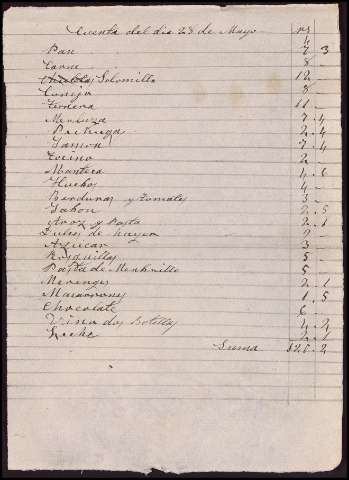 Cuenta del dia 28 de Mayo
Pan 7 3
Carne 8 -
Solomillo 12 -
Conejo 8
Ternera 11 -
Merluza 7 . 4
2 . 4
Jamon 7 . 4
Tocino 2 -
Manteca 4 . 6
Huebos 4 -
Berduras y tomates 3 -
Jabon 2 . 5
Aroz y Pasta 2 . 1
Azucar 3 -
Rosquillas 5 -
Pasta de Menbrillo 5 -
Merenges 2 . 1
Macarrones 1 . 5
Chocolate 6 -
Vino dos Botellas 4 . 2
Leche 2 . 1
Suma 126 . 2